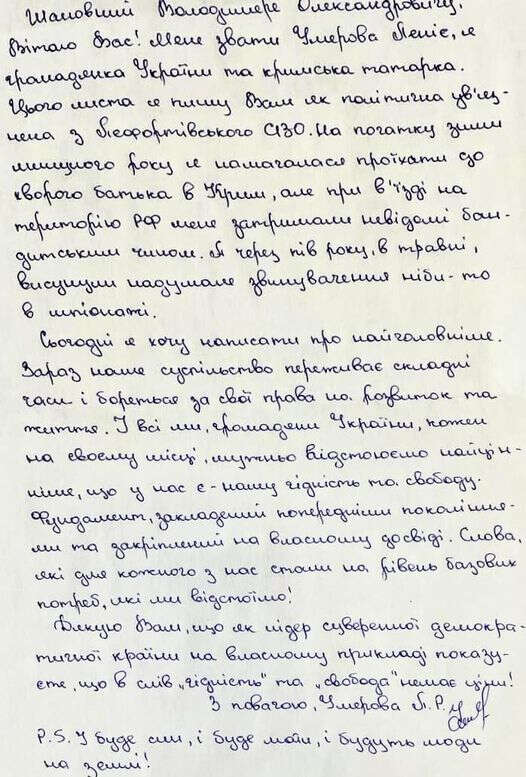 Шановний Володимире Олександровичу!
Вітаю Вас! Мене звати Умерова Леніє, я
громадянка України та кримська татарка.
Цього листа я пишу Вам як політична ув'яз-
нена з Лефортівського СІЗО. На початку зими
минулого року я намагалася проїхати до
хворого батька в Крим, але при в'їзді на
територію РФ мене затримали невідомі бан-
дитським чином. А через пів року, в травні,
висунули надумане звинувачення ніби-то
в шпіонажі.
Сьогодні я хочу написати про найголовніше.
Зараз наше суспільство переживає складні
часи і бореться за свої права на розвиток та
життя. І всі ми, громадяни України, кожен
на своєму місці, мужньо відстоюємо найцін-
ніше, що у нас є - нашу гідність та свободу.
Фундамент, закладений попередніми покоління-
ми та закріплений на власному досвіді. Слова,
які для кожного з нас стали на рівень базових
потреб, які ми відстоїмо!
Дякую Вам, що як лідер суверенної демокра-
тичної країни на власному прикладі показу-
єте, що в слів „гідність" та „свобода" немає ціни!
З повагою, Умерова Л. Р.
P.S. І буде син, і буде мати, і будуть люди
на землі!